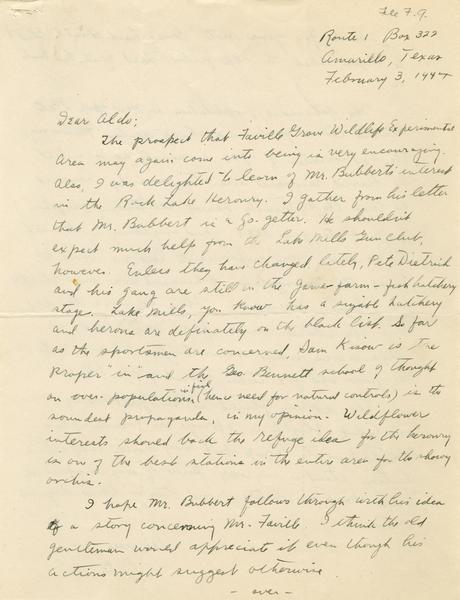 File F.G.
Route 1 Box 322
Amarillo, Texas
February 3, 1944
Dear Aldo;
The prospect that Faville Grove Wildlife Experimental
Area may again come into being is very encouraging.
Also, I was delighted to learn of Mr. Bubbert's interest
in the Rock Lake Heronry. I gather from his letter
that Mr. Bubbert is a go-getter. He shouldn't
expect much help from the Lake Mills Gun Club,
however. Unless they have changed lately, Pete Dietrich
and his gang are still in the game-farm - fish hatchery
stage. Lake Mills, you know has a sizable hatchery
and herons are definately on the black list. So far
as the sportsmen are concerned, is the
proper "in" and the Geo. Bennett school of thought
on over-populations in fish (hence need for natural controls) is the
soundest propaganda, in my opinion. Wildflower
interests should back the refuge idea for the heronry
is one of the best stations in the entire area for the showy
orchis.
I hope Mr. Bubbert follows through with his idea
of a story concerning Mr. Faville. I think the old
gentleman would appreciate it even though his
actions might suggest otherwise
- over -